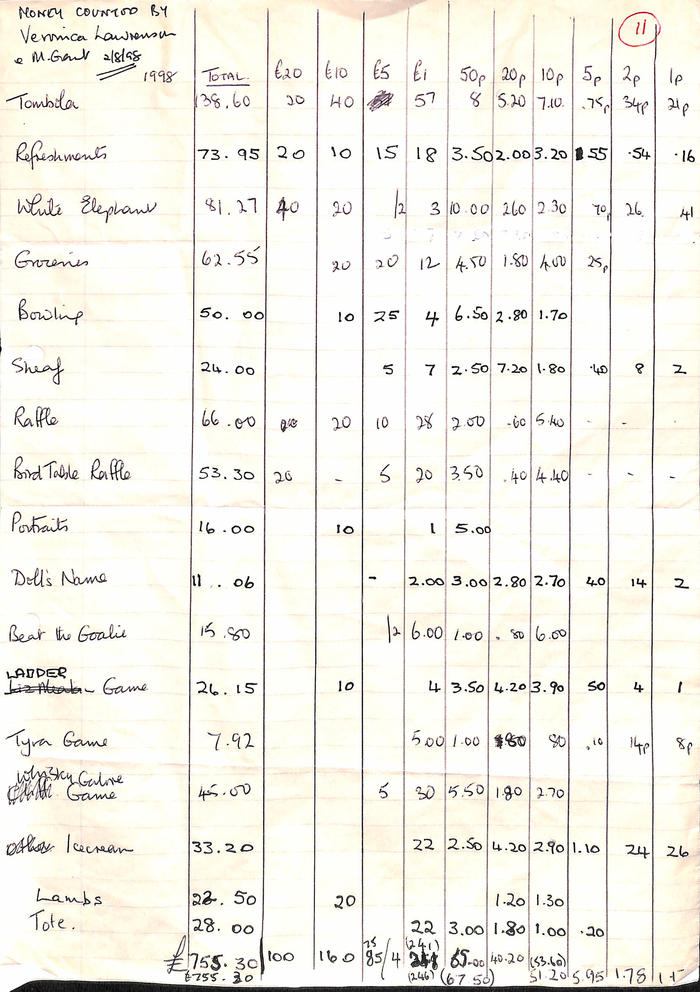 MONEY COUNTED BY
Veronica Lawrenson
& M. Gant 2/8/98
11
1998 TOTAL £20 £10 £5 £1 50p 20p 10p 5p 2p 1p
Tombola 138.60 20 40 57 8 5.20 7.10 .75p 34p 21p
Refreshments 73.95 20 10 15 18 3.50 2.00 3.20 55 .54 .16
White Elephant 81.27 40 20 12 3 10.00 260 2.30 70p 26 41
Groceries 62.55 20 20 12 4.50 1.80 4.00 25p
Bowling 50.00 10 25 4 6.50 2.80 1.70
Sheaf 24.00 5 7 2.50 7.20 1.80 .40 8 2
Raffle 66.00 20 10 28 2.00 .60 5.40 - - -
Bird Table Raffle 53.30 20 - 5 20 3.50 .40 4.40 - - -
Portraits 16.00 10 1 5.00
Doll's Name 11.06 - 2.00 3.00 2.80 2.70 40 14 2
Beat the Goalie 15.80 12 6.00 1.00 .80 6.00
LADDER
Game 26.15 10 4 3.50 4.20 3.90 50 4 1
Tyra Game 7.92 5.00 1.00 80 80 .10 14p 8p
Whisky Galore
Game 45.00 5 30 5.50 1.80 2.70
Icecream 33.20 22 2.50 4.20 2.90 1.10 24 26
Lambs 22.50 20 1.20 1.30
Tote. 28.00 22 3.00 1.80 1.00 .20
75 (241)
£755.30 100 160 85/4 65.00 40.20 (53.60)
£755.30 (246) (67.50) 51.20 5.95 1.78